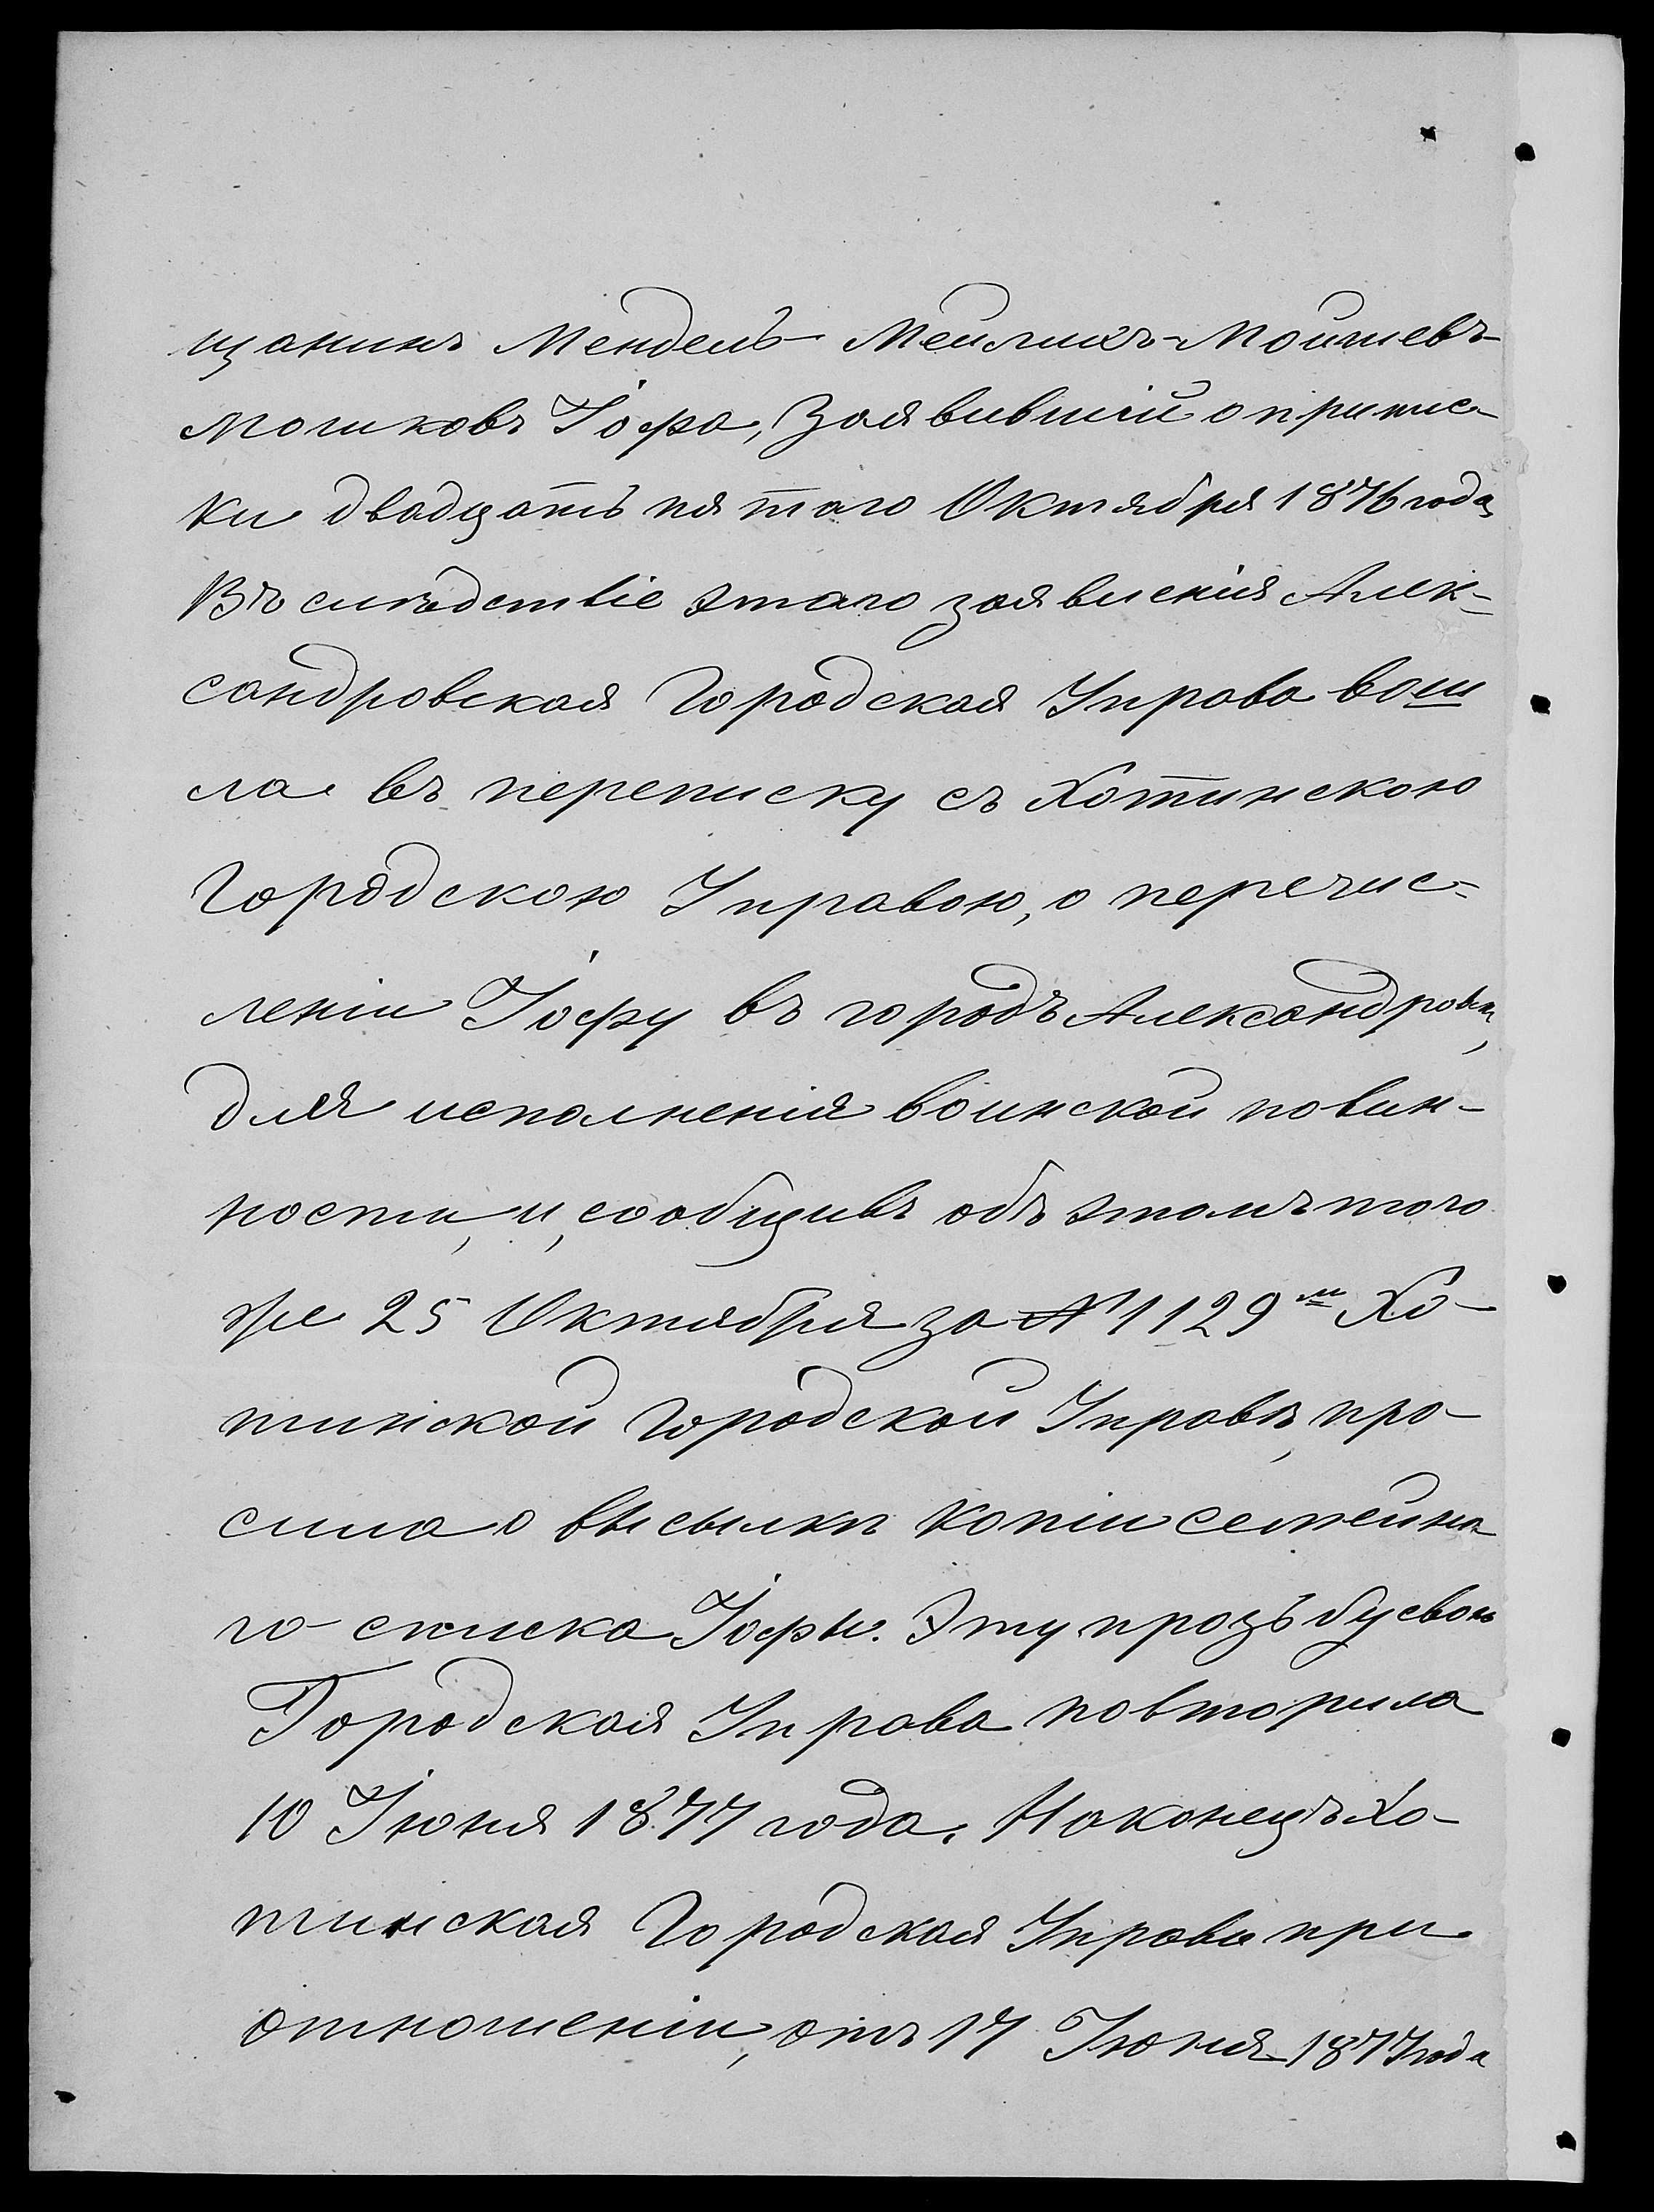 щанинъ Мендель Мейлихъ-Мойшевъ-
мошковъ Іофа, заявившій о приписк-
ки двадцать пятаго Октября 1876 года,
Въ слѣдствіе этаго заявленія Алек-
сандровская Городская Управа вош
ла въ переписку съ Хотинскою
Городскою Управою, о перечис-
леніи Іофу въ городъ Александровъ,
для исполненія воинской повин-
ности, и, сообщивъ объ этомъ того
же 25 Октября за № 1129м Хо-
тинской Городской Управѣ, про-
сила о высылкѣ копіи семейна
го списка Іофы. Эту прозьбу свою
Городская Управа повторила
10 Іюня 1877 года. Наконецъ Хо-
тинская Городская Управа при
отношеніи, отъ 17 Іюня 1877 года